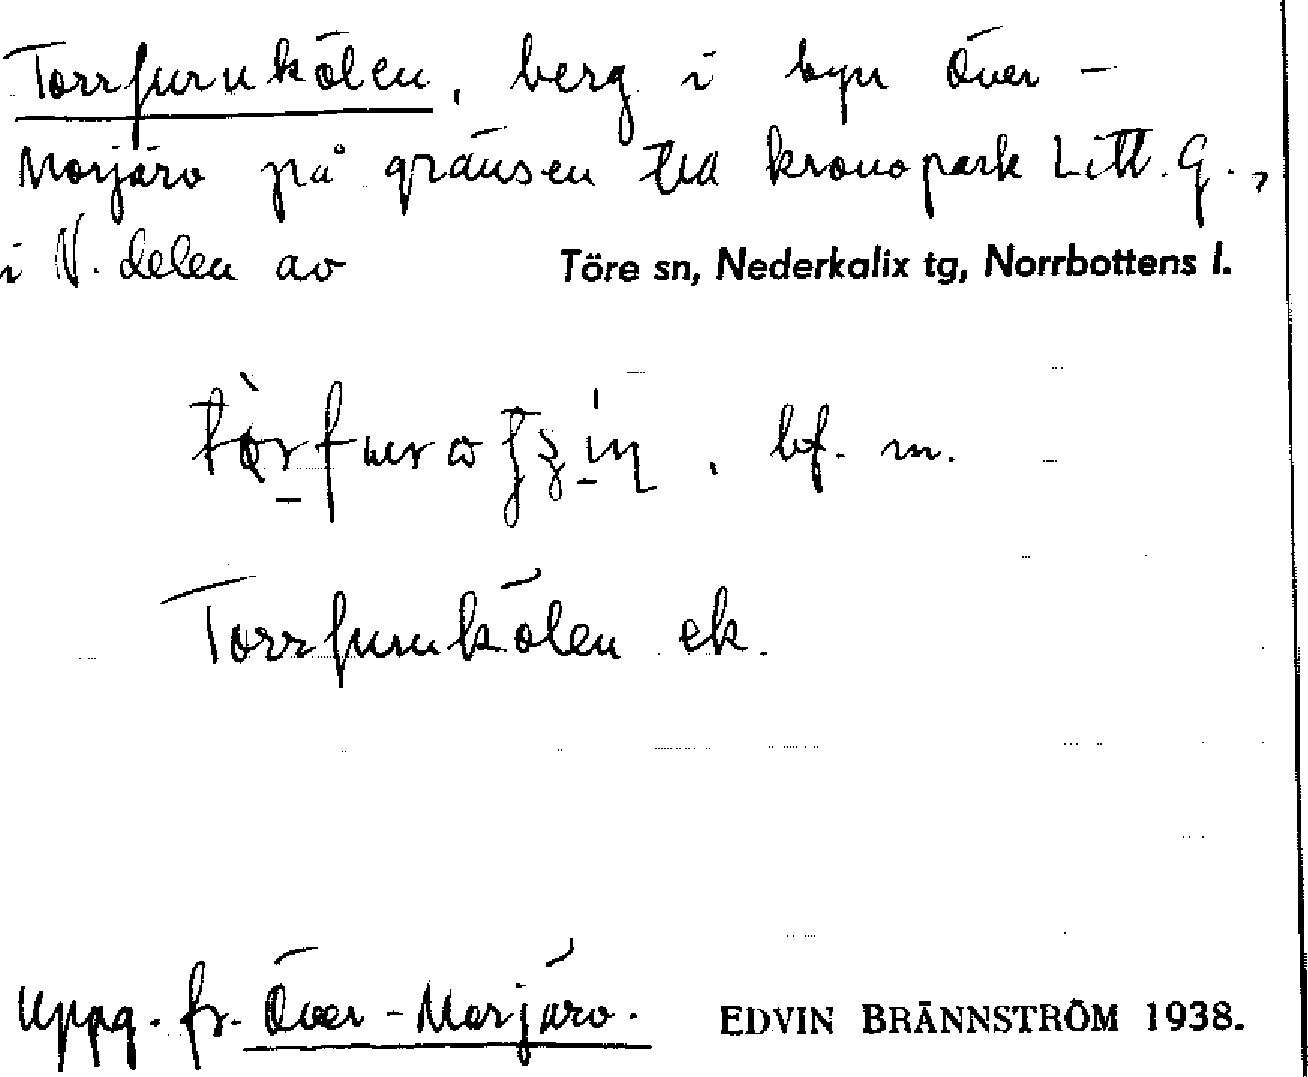 Torrfurukölen, berg i byn Över-
Morjärv på gränsen till kronopark Litt. G.,
i N. delen av Töre sn, Nederkalix tg, Norrbottens l.
bf. m.
Torrfurukölen ek.
Uppg. fr. Över-Morjärv. EDVIN BRÄNNSTRÖM 1938.